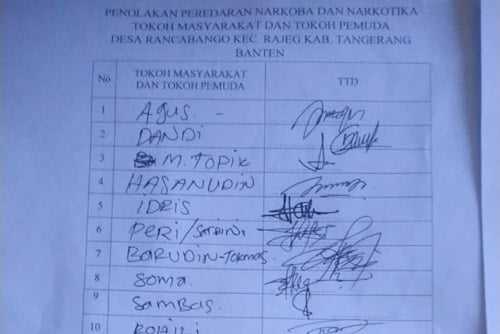 PENOLAKAN PEREDARAN NARKOBA DAN NARKOTIKA
TOKOH MASYARAKAT DAN TOKOH PEMUDA
DESA RANCABANGO KEC. RAJEG KAB. TANGERANG
BANTEN
No TOKOH MASYARAKAT DAN TOKOH PEMUDA TTD
1 Agus. -
2 DANDI
3 M. TOPIK
4 HASANUDIN
5 IDRIS
6 PERI/
7 BARUDIN-TOKMAS.
8 SOMA.
9 SAMBAS.
10